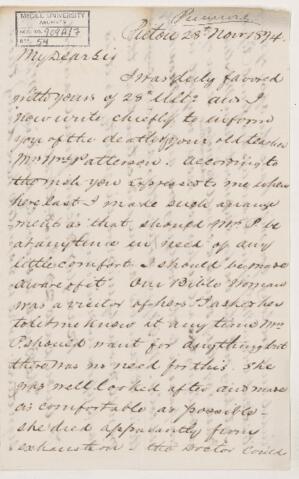 McGILL UNIVERSITY
ARCHIVES
ACC. NO. 909A/7
REF. 54
Pictou 28th Novr 1874.
My dear Sir
I was duly favored
with yours of 28th Ulto and I
now write chiefly to inform
you of the death of your old teacher
Mrs Wm Patterson. According to
the wish you expressed to me when
here last I made such arrange
ment as that should Mrs P be
at any time in need of any
little comfort I should be made
aware of it. Our Bible Woman
was a visitor of hers I asked her
to let me know if at any time Mrs
P should want for anything but
there was no need for this. She
was well looked after and made
as comfortable as possible
she died apparently from
exhaustion & the Doctor could